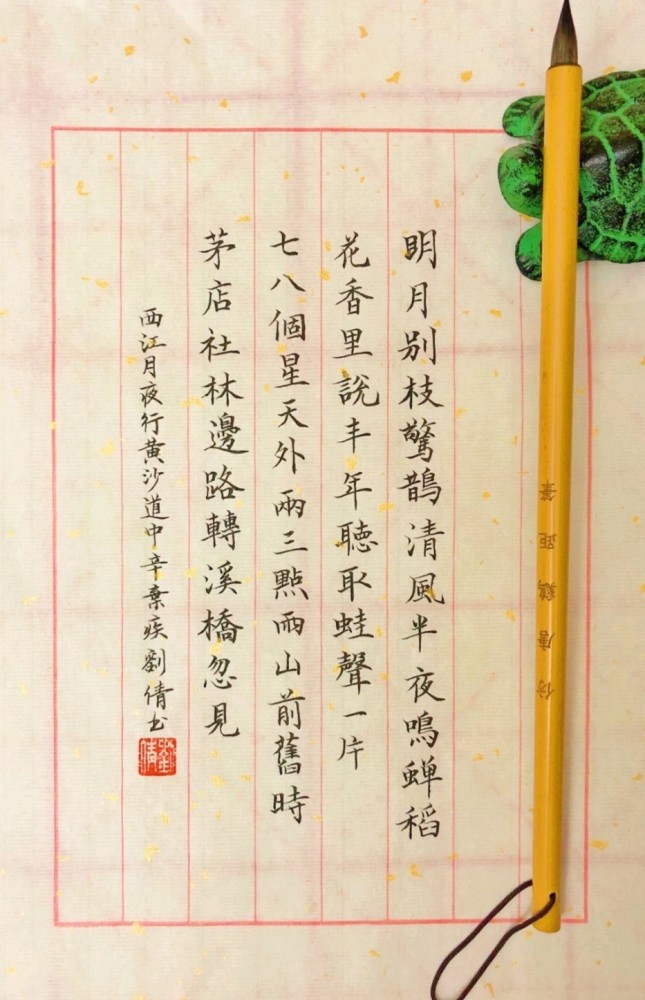 明月别枝驚鵲清風半夜鳴蝉稻
花香里說丰年聽取蛙聲一片
七八個星天外兩三點雨山前舊時
茅店社林邊路轉溪橋忽見
西江月夜行黄沙道中辛棄疾劉倩书
劉倩
仿唐鷄距筆